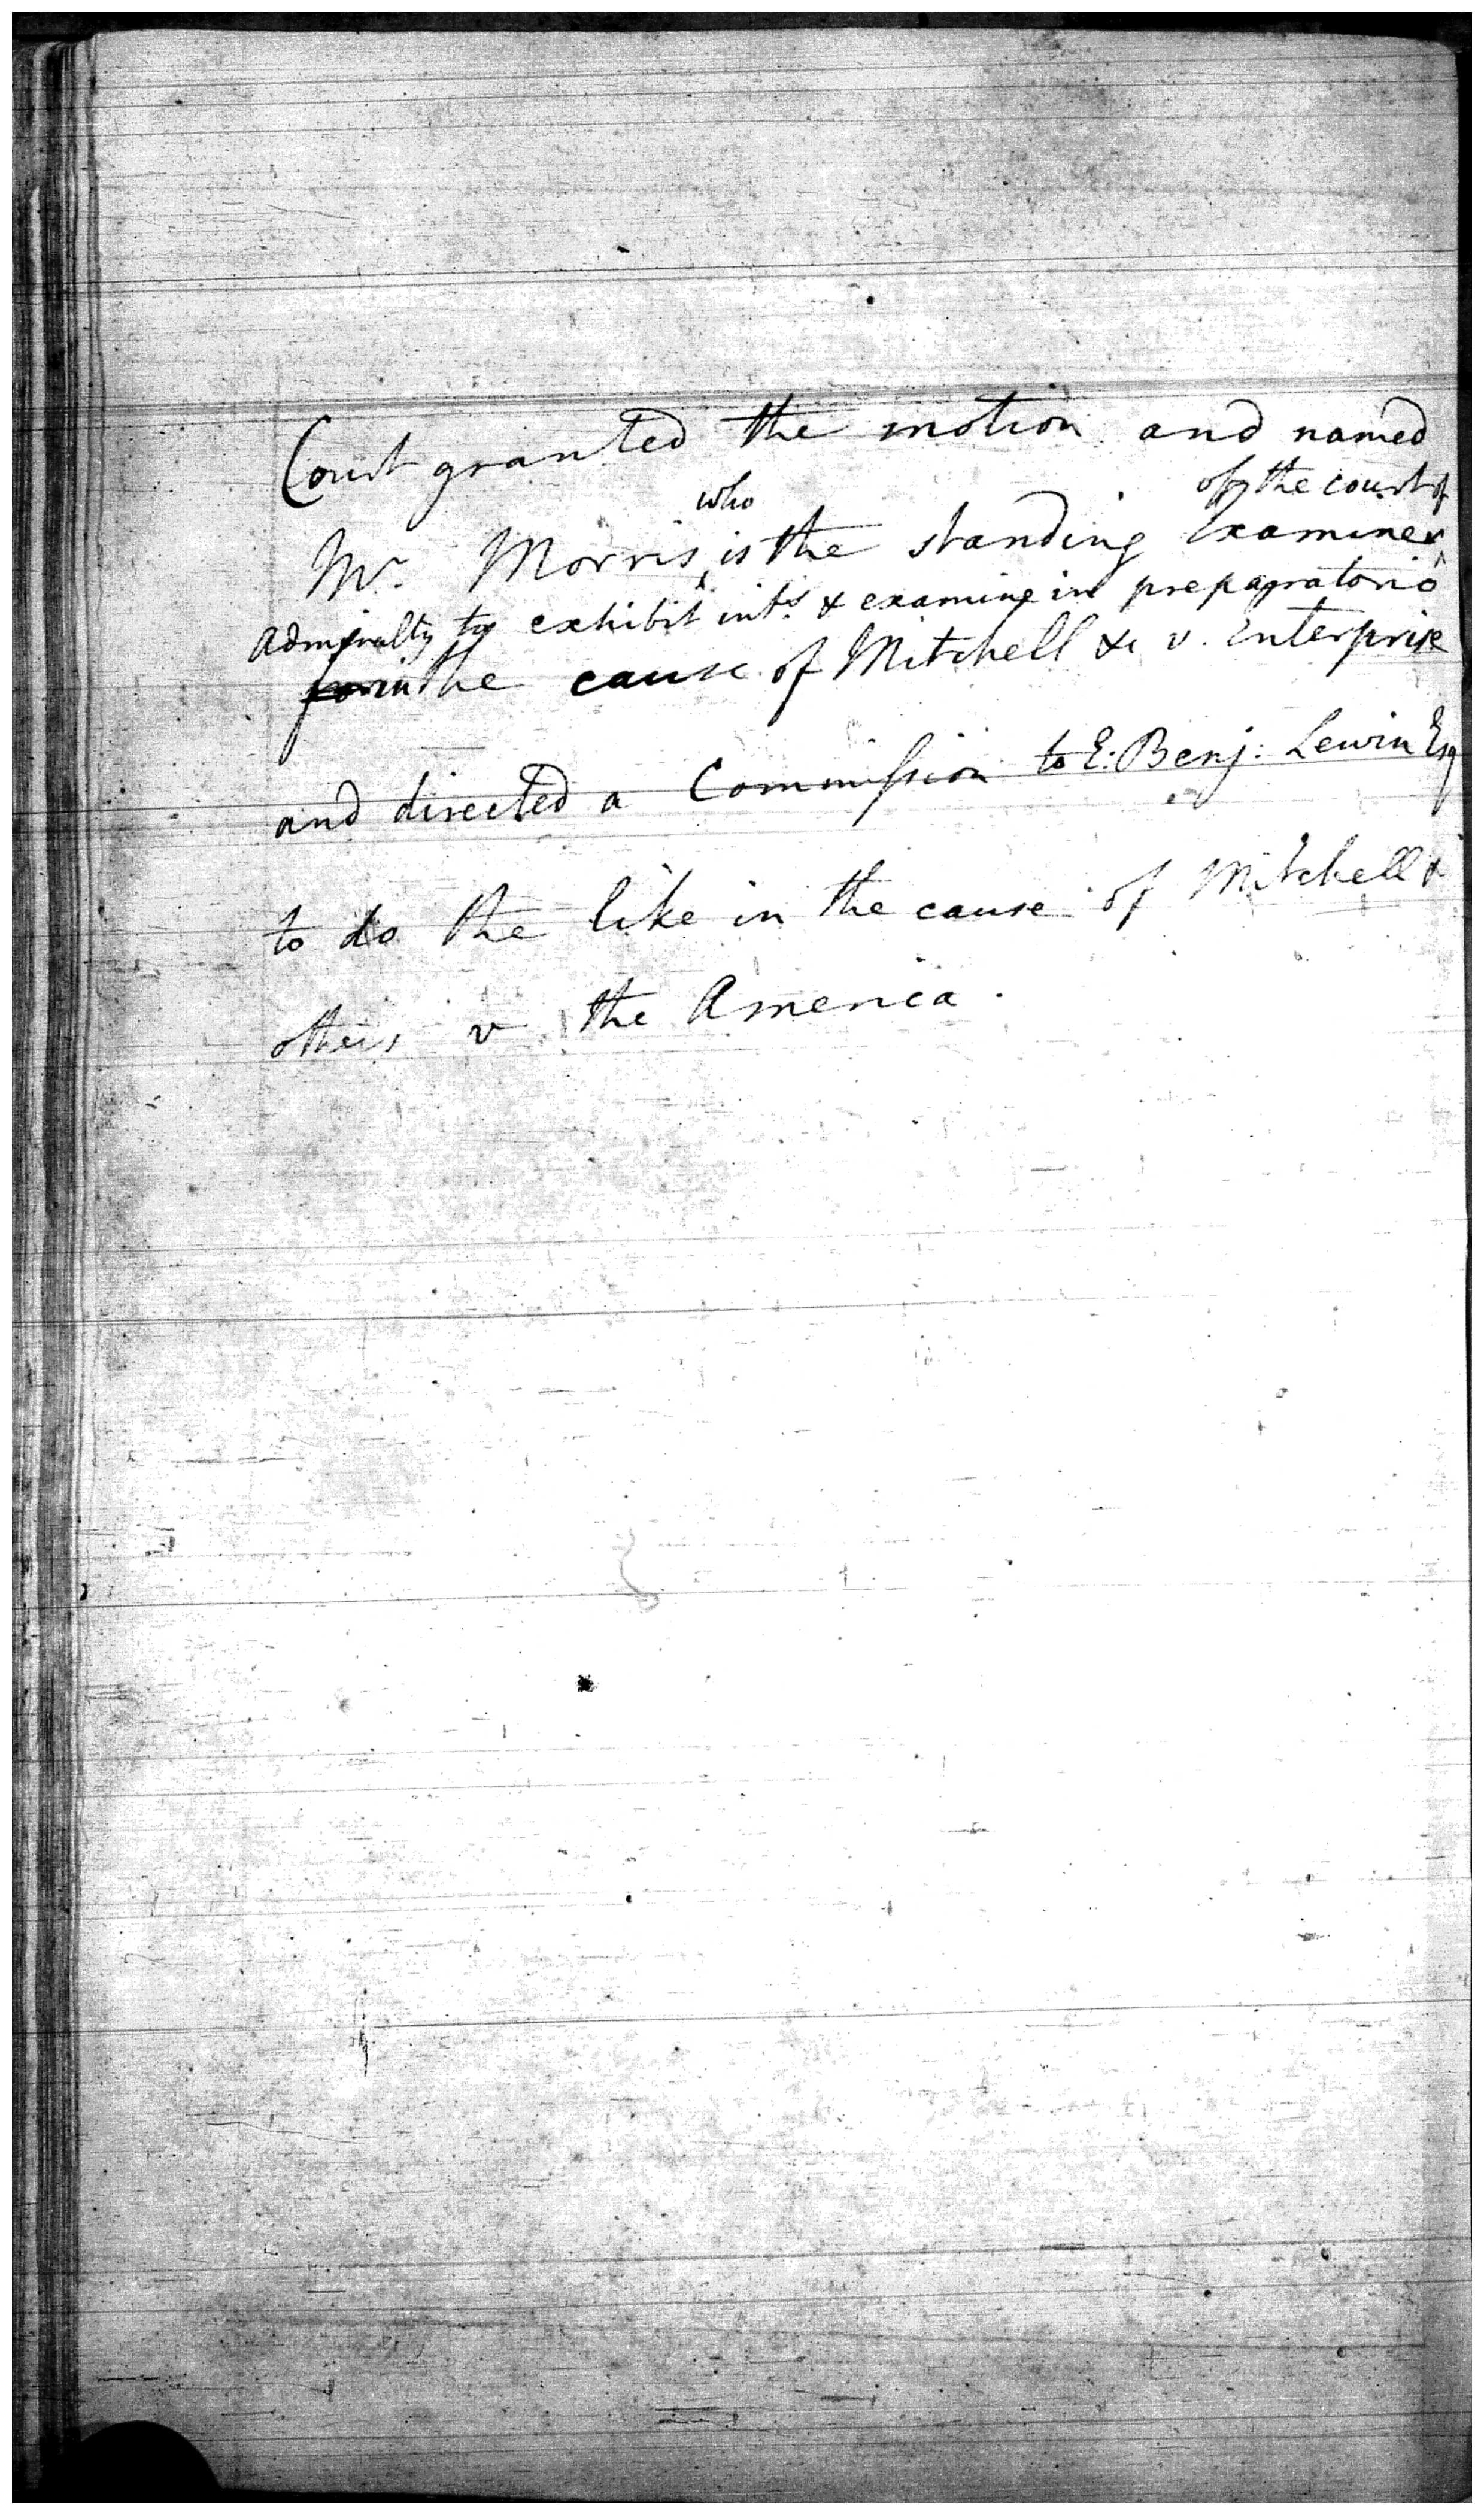 Court granted the motion and named
who of the court of
Mr. Morris, is the standing Examiner
Admiralty to exhibit ints. & examine in preparatorio
in the cause of Mitchell &c v. Enterprise
and directed a Commission to E. Benj: Lewin Esq
to do the like in the cause of Mitchell &
others v the America.